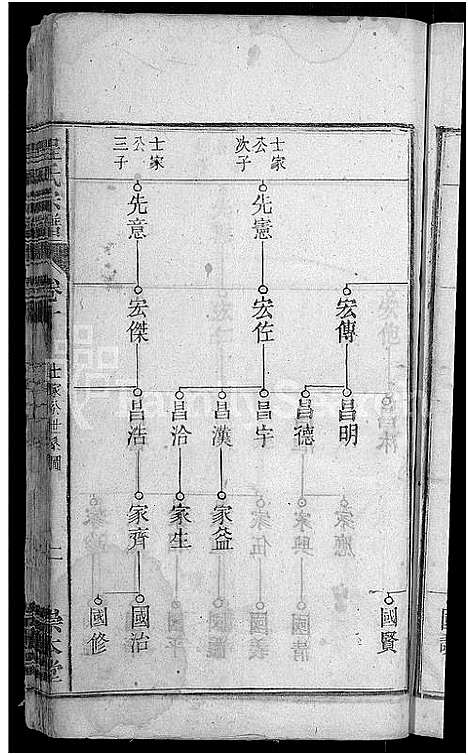 士家
公
次子
士家
公
三子
先憲
先意
宏傳
宏佐
宏傑
昌明
昌德
昌宇
昌漢
昌洽
昌浩
家益
家生
家齊
國賢
國治
國修
士家公世系圖